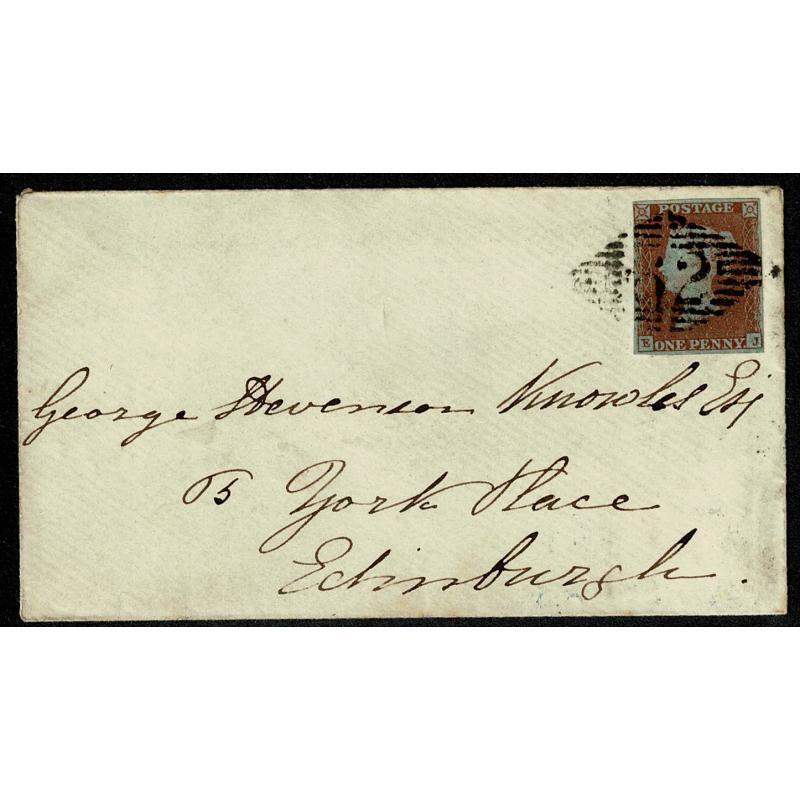 POSTAGE
E ONE PENNY J
George Stevenson Knowles Esq
5 York Place
Edinburgh.